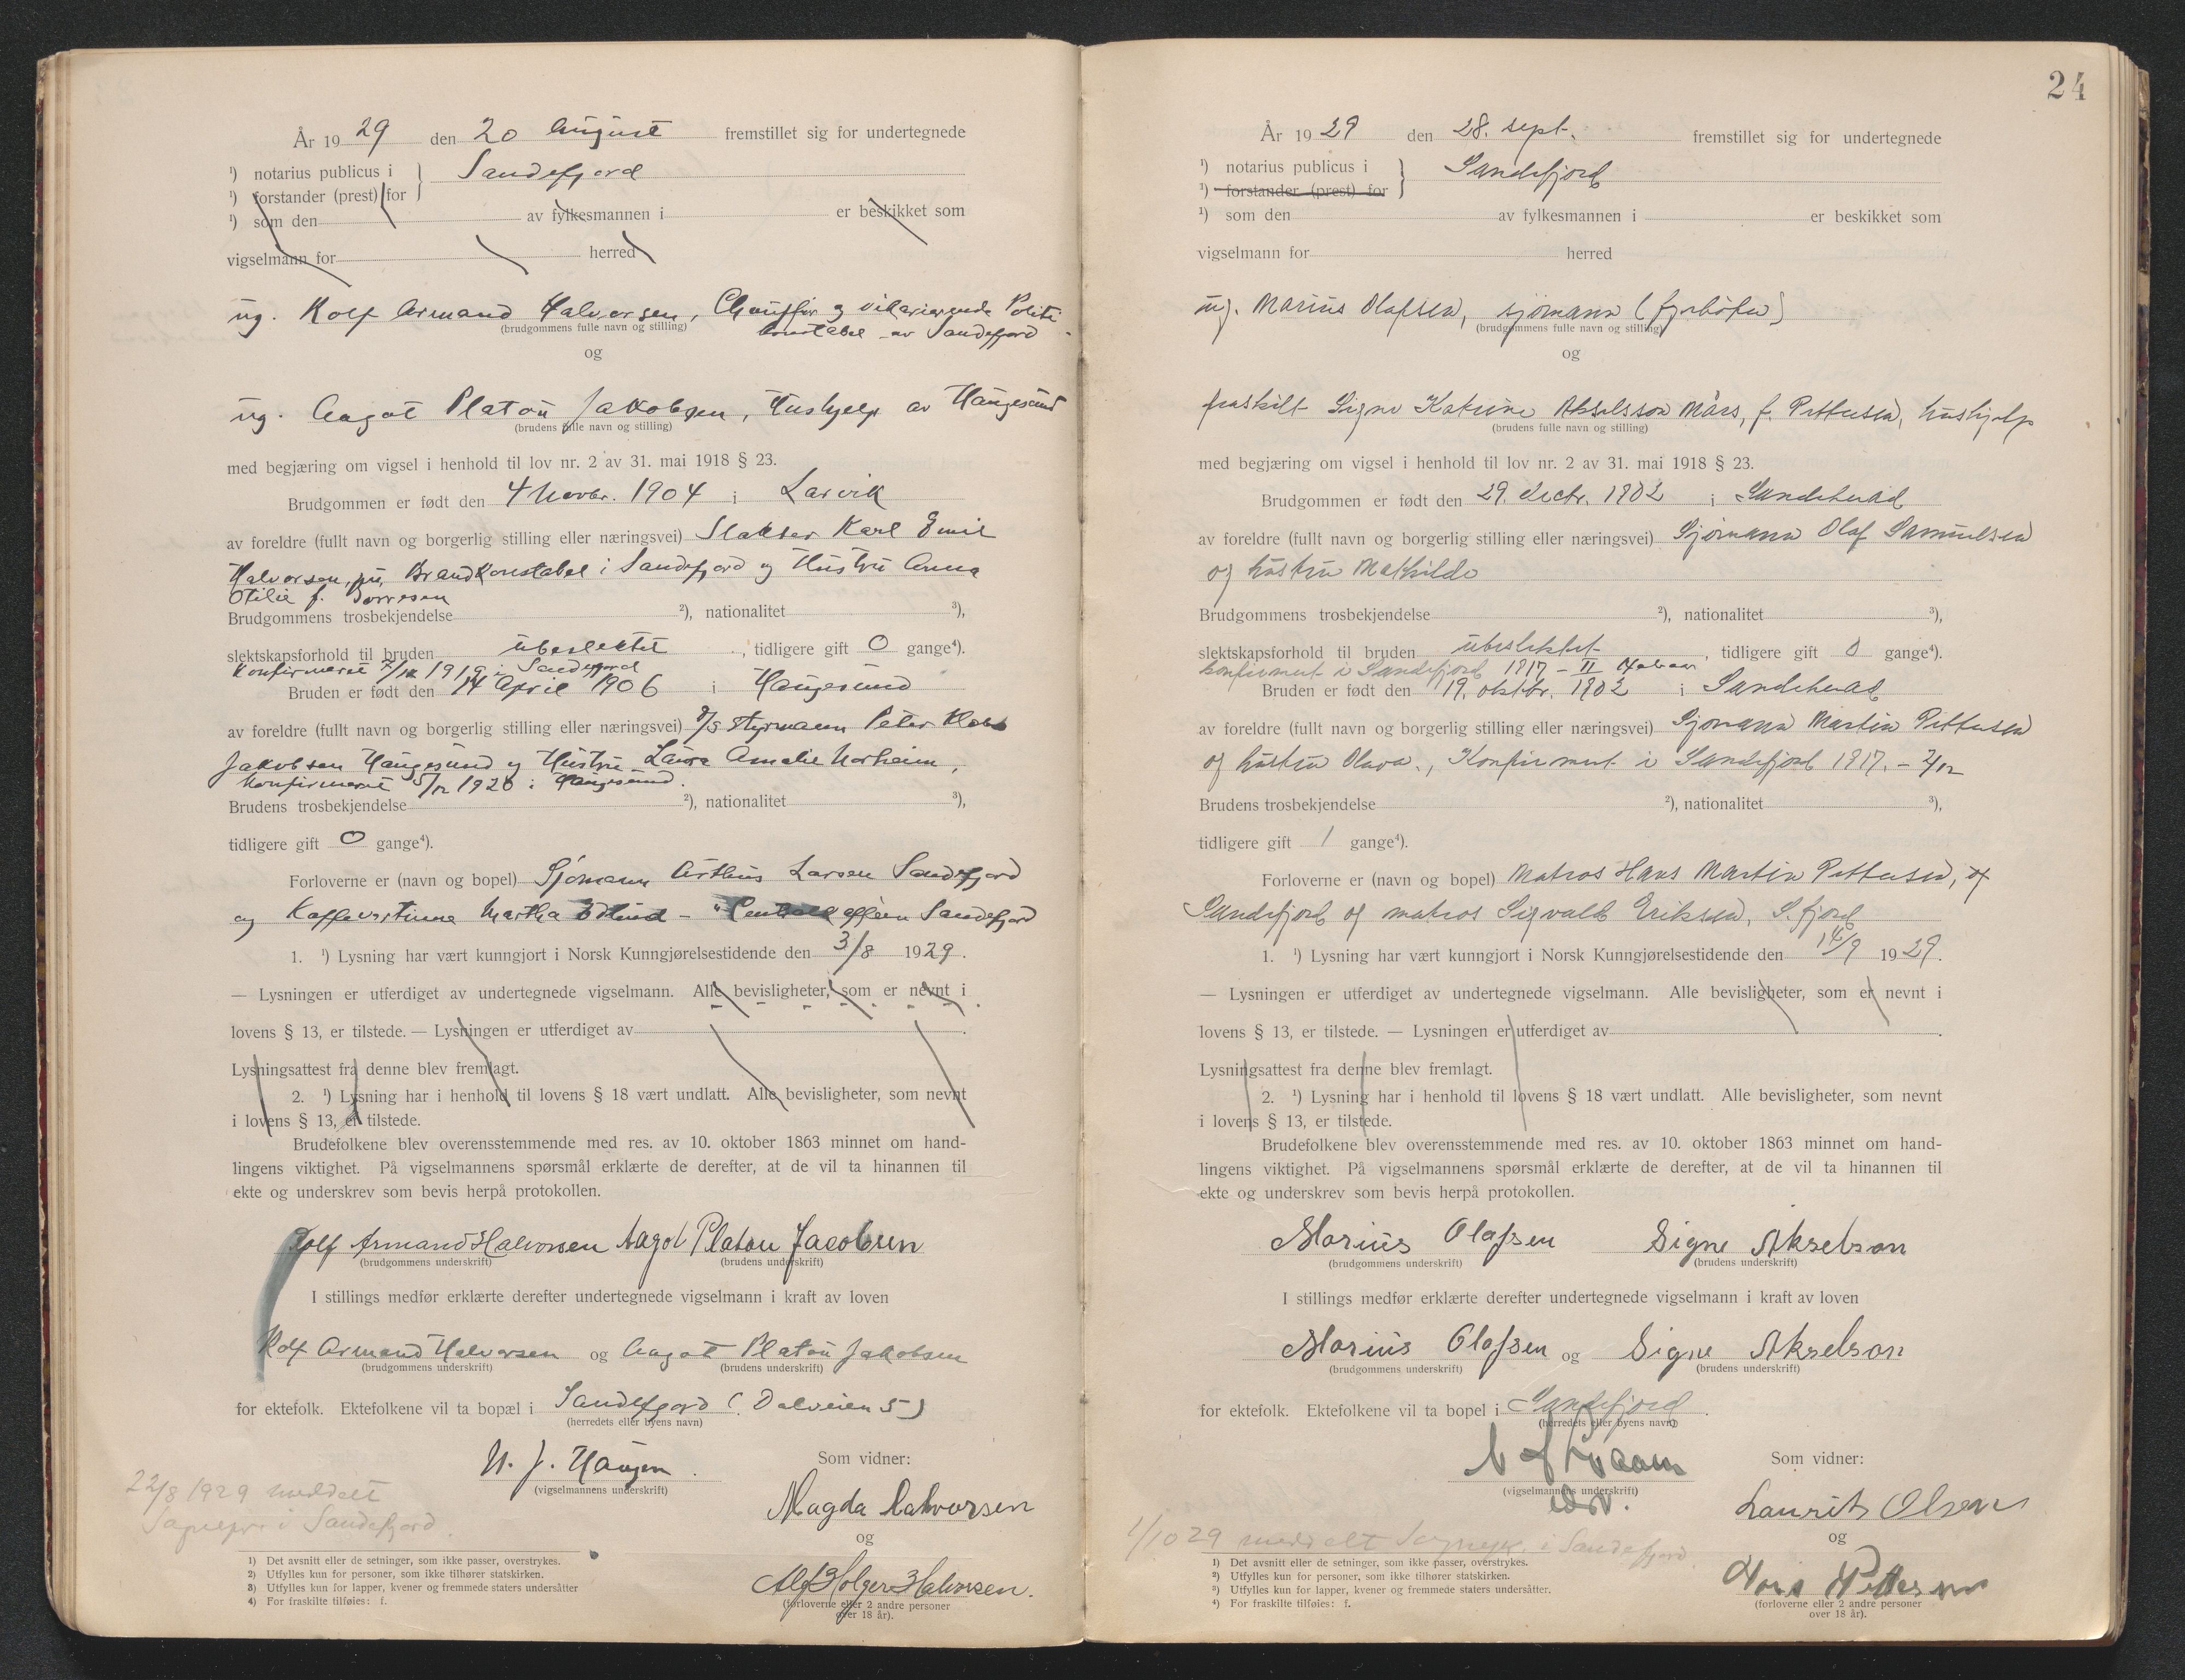 År 1929 den 20 August fremstillet sig for undertegnede
¹) notarius publicus i } Sandefjord
¹) forstander (prest) for
¹) som den av fylkesmannen i er beskikket som
vigselmann for herred
ug. Rolf Armand Halvorsen, Chauffør og vikarierende Politi-
(brudgommens fulle navn og stilling)
konstabel av Sandefjord
og
ug. Aagot Platou Jakobsen, Hushjelp av Haugesund
(brudens fulle navn og stilling)
med begjæring om vigsel i henhold til lov nr. 2 av 31. mai 1918 § 23.
Brudgommen er født den 4 Novbr. 1904 i Larvik
av foreldre (fullt navn og borgerlig stilling eller næringsvei) Slakter Karl Emil
Halvorsen, nu Brandkonstabel i Sandefjord og Hustru Anna
Otilie f.
Brudgommens trosbekjendelse ²), nationalitet ³),
slektskapsforhold til bruden ubeslektet, tidligere gift 0 gange⁴).
Konfirmeret 7/12 1919 i Sandefjord
Bruden er født den 14 April 1906 i Haugesund
av foreldre (fullt navn og borgerlig stilling eller næringsvei) Styrmann Peter
Jakobsen Haugesund og Hustru Laura Amalie Norheim,
Konfirmeret 5/12 1920 i Haugesund.
Brudens trosbekjendelse ²), nationalitet ³),
tidligere gift 0 gange⁴).
Forloverne er (navn og bopel) Sjömann Arthur Larsen Sandefjord
og Kaffevertinne Martha Sandefjord
1. ¹) Lysning har vært kunngjort i Norsk Kunngjørelsestidende den 3/8 1929.
— Lysningen er utferdiget av undertegnede vigselmann. Alle bevisligheter, som er nevnt i
lovens § 13, er tilstede. — Lysningen er utferdiget av
Lysningsattest fra denne blev fremlagt.
2. ¹) Lysning har i henhold til lovens § 18 vært undlatt. Alle bevisligheter, som nevnt
i lovens § 13, er tilstede.
Brudefolkene blev overensstemmende med res. av 10. oktober 1863 minnet om hand-
lingens viktighet. På vigselmannens spørsmål erklærte de derefter, at de vil ta hinannen til
ekte og underskrev som bevis herpå protokollen.
Rolf Armand Halvorsen Aagot Platou Jacobsen
(brudgommens underskrift) (brudens underskrift)
I stillings medfør erklærte derefter undertegnede vigselmann i kraft av loven
Rolf Armand Halvorsen og Aagot Platou Jakobsen
(brudgommens underskrift) (brudens underskrift)
for ektefolk. Ektefolkene vil ta bopæl i Sandefjord (Dalveien 5)
(herredets eller byens navn)
N. J. Haugen
(vigselmannens underskrift)
Som vidner:
Magda Halvorsen
og
Alf Holger Halvorsen.
(forloverne eller 2 andre personer
over 18 år).
22/8 1929 meddelt
Sognepr. i Sandefjord.
1) Det avsnitt eller de setninger, som ikke passer, overstrykes.
2) Utfylles kun for personer, som ikke tilhører statskirken.
3) Utfylles kun for lapper, kvener og fremmede staters undersåtter
4) For fraskilte tilføies: f.
24
År 1929 den 28. sept. fremstillet sig for undertegnede
¹) notarius publicus i } Sandefjord
¹) forstander (prest) for
¹) som den av fylkesmannen i er beskikket som
vigselmann for herred
ug. Marius Olafsen, sjømann (fyrbøter)
(brudgommens fulle navn og stilling)
og
fraskilt Signe Katrine Akselsson Mårs, f. Pettersen, hushjelp
(brudens fulle navn og stilling)
med begjæring om vigsel i henhold til lov nr. 2 av 31. mai 1918 § 23.
Brudgommen er født den 29. decbr. 1902 i Sandeherad
av foreldre (fullt navn og borgerlig stilling eller næringsvei) Sjømann Olaf Samuelsen
og hustru Mathilde
Brudgommens trosbekjendelse ²), nationalitet ³),
slektskapsforhold til bruden ubeslektet, tidligere gift 0 gange⁴).
konfirmert i Sandefjord 1917 –
Bruden er født den 19. oktbr. 1902 i Sandeherad
av foreldre (fullt navn og borgerlig stilling eller næringsvei) Sjømann Martin Pettersen
og hustru Olava., Konfirmert i Sandefjord 1917. –
Brudens trosbekjendelse ²), nationalitet ³),
tidligere gift 1 gange⁴).
Forloverne er (navn og bopel) Matros Hans Martin Pettersen, af
Sandefjord og matros Sigvald Eriksen, S.fjord
1. ¹) Lysning har vært kunngjort i Norsk Kunngjørelsestidende den 14/9 1929.
— Lysningen er utferdiget av undertegnede vigselmann. Alle bevisligheter, som er nevnt i
lovens § 13, er tilstede. — Lysningen er utferdiget av
Lysningsattest fra denne blev fremlagt.
2. ¹) Lysning har i henhold til lovens § 18 vært undlatt. Alle bevisligheter, som nevnt
i lovens § 13, er tilstede.
Brudefolkene blev overensstemmende med res. av 10. oktober 1863 minnet om hand-
lingens viktighet. På vigselmannens spørsmål erklærte de derefter, at de vil ta hinannen til
ekte og underskrev som bevis herpå protokollen.
Marius Olafsen Signe Akselson
(brudgommens underskrift) (brudens underskrift)
I stillings medfør erklærte derefter undertegnede vigselmann i kraft av loven
Marius Olafsen og Signe Akselson
(brudgommens underskrift) (brudens underskrift)
for ektefolk. Ektefolkene vil ta bopel i Sandefjord.
(herredets eller byens navn)
(vigselmannens underskrift)
Som vidner:
Laurits Olsen
og
(forloverne eller 2 andre personer
over 18 år).
1/10 29 meddelt Sognepr. i Sandefjord.
1) Det avsnitt eller de setninger, som ikke passer, overstrykes.
2) Utfylles kun for personer, som ikke tilhører statskirken.
3) Utfylles kun for lapper, kvener og fremmede staters undersåtter.
4) For fraskilte tilføies: f.